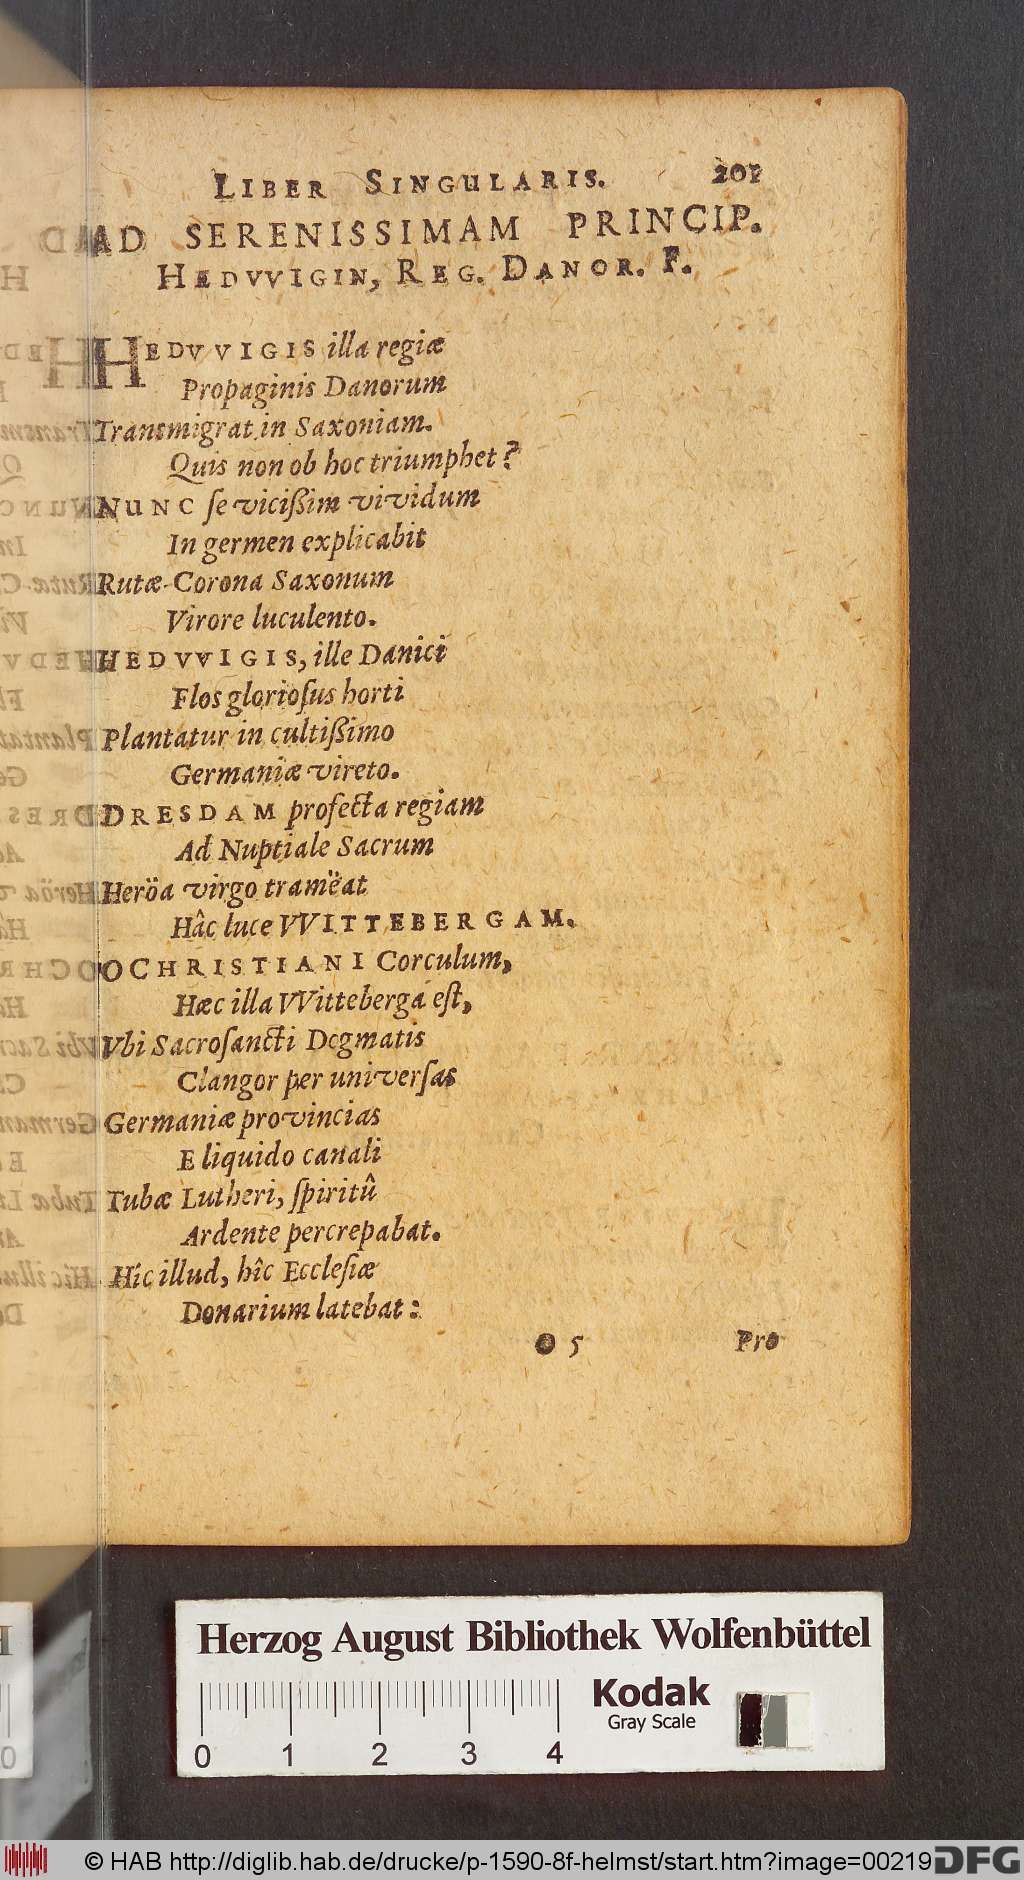 LIBER SINGULARIS. 201
AD SERENISSIMAM PRINCIP.
HEDVVIGIN, REG. DANOR. F.
HEDVVIGIS illa regiæ
Propaginis Danorum
Transmigrat in Saxoniam.
Quis non ob hoc triumphet?
NUNC ſe vicißim vividum
In germen explicabit
Rutæ Corona Saxonum
Virore luculento.
HEDVVIGIS, ille Danici
Flos glorioſus horti
Plantatur in cultißimo
Germaniæ vireto.
DRESDAM profecta regiam
Ad Nuptiale Sacrum
Heröa virgo trameat
Hâc luce VVITTEBERGAM.
O CHRISTIANI Corculum,
Hæc illa VVitteberga eſt,
Vbi Sacroſancti Dogmatis
Clangor per univerſas
Germaniæ provincias
E liquido canali
Tubæ Lutheri, ſpiritû
Ardente percrepabat.
Hîc illud, hîc Eccleſiæ
Donarium latebat:
O 5 Pro
Herzog August Bibliothek Wolfenbüttel
Kodak
Gray Scale
0 1 2 3 4
© HAB http://diglib.hab.de/drucke/p-1590-8f-helmst/start.htm?image=00219 DFG